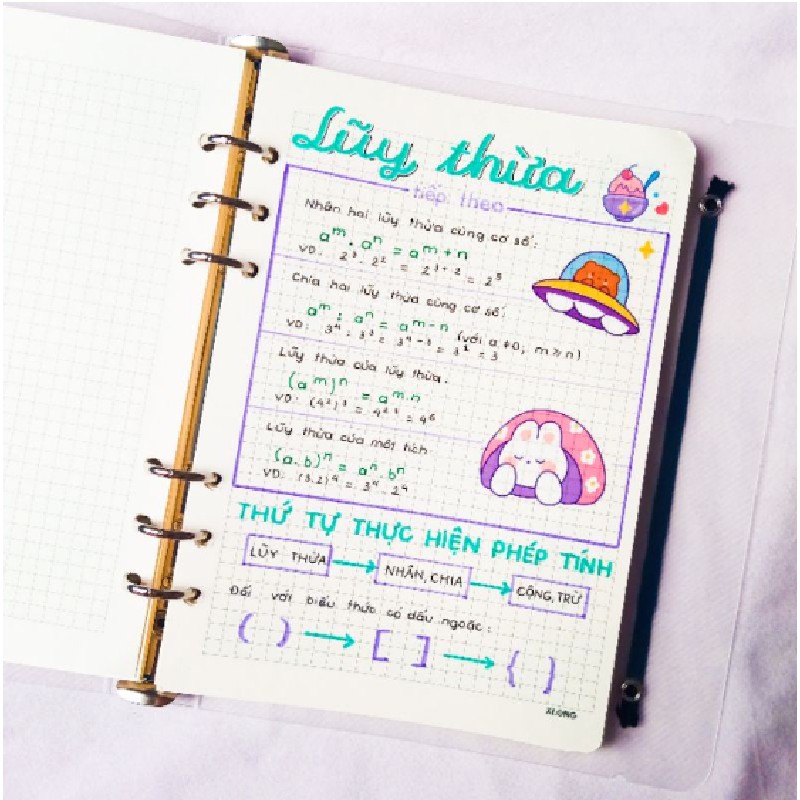 Lũy thừa
tiếp theo
Nhân hai lũy thừa cùng cơ số:
aᵐ . aⁿ = aᵐ⁺ⁿ
VD: 2³ . 2² = 2³⁺² = 2⁵
Chia hai lũy thừa cùng cơ số:
aᵐ : aⁿ = aᵐ⁻ⁿ (với a ≠ 0, m ≥ n)
VD: 3⁴ : 3³ = 3⁴⁻³ = 3¹ = 3
Lũy thừa của lũy thừa:
(aᵐ)ⁿ = aᵐ·ⁿ
VD: (4²)³ = 4²·³ = 4⁶
Lũy thừa của một tích
(a.b)ⁿ = aⁿ.bⁿ
VD: (3.2)⁴ = 3⁴.2⁴
THỨ TỰ THỰC HIỆN PHÉP TÍNH
LŨY THỪA → NHÂN, CHIA → CỘNG, TRỪ
Đối với biểu thức có dấu ngoặc:
( ) → [ ] → { }